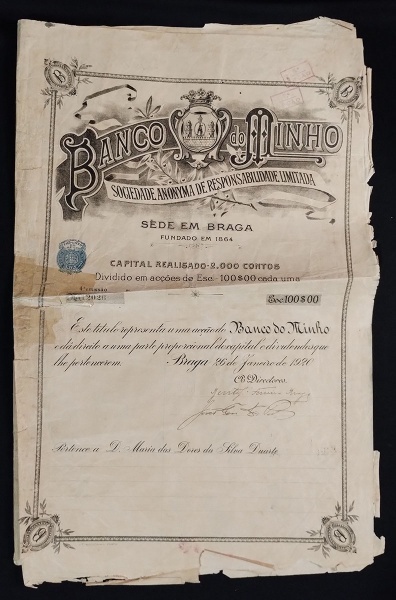 BANCO do MINHO
SOCIEDADE ANONYMA DE RESPONSABILIDADE LIMITADA
SÉDE EM BRAGA
FUNDADO EM 1864
CAPITAL REALISADO-2.000 CONTOS
Dividido em acções de Esc. 100$00 cada uma
Esc. 100$00
Este titulo representa uma acção do Banco do Minho
e dá direito a uma parte proporcional do capital e dividendos que
lhe pertencerem. Braga 26 de Janeiro de
Os Directores.
Pertence a D. Maria das Dores da Silva Duarte